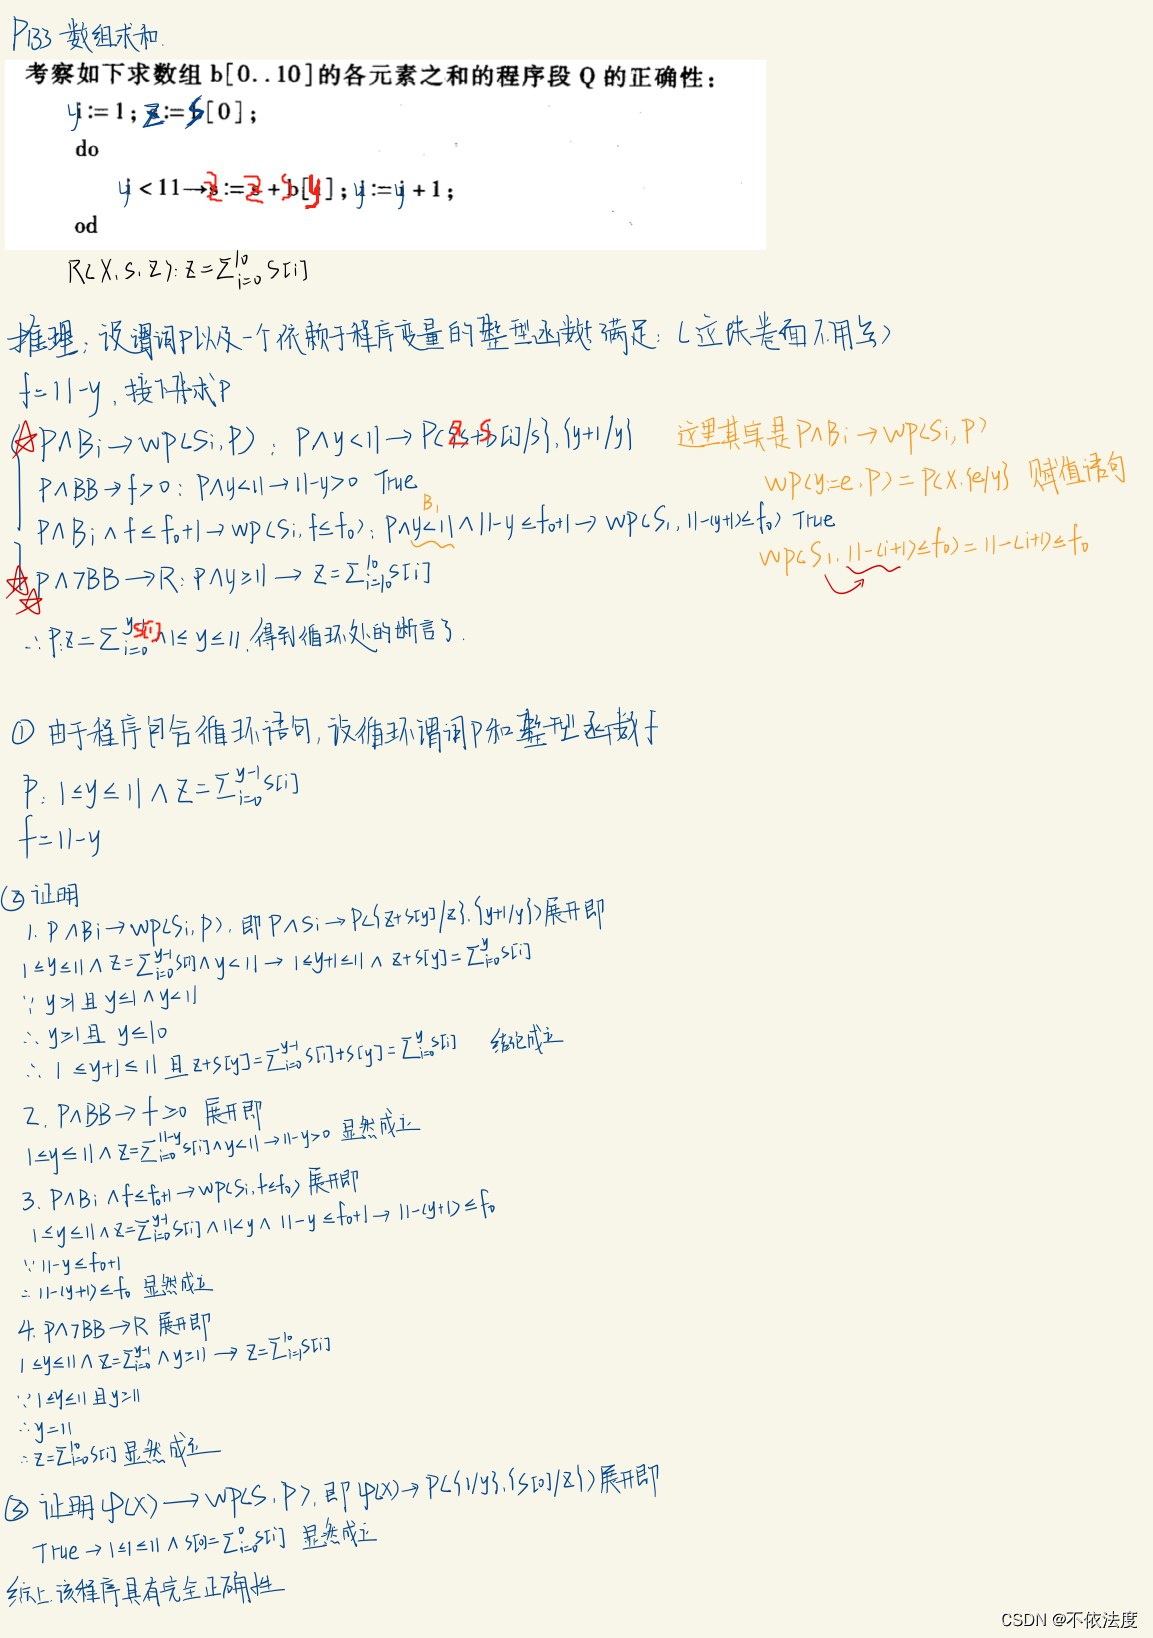 P133 数组求和.
考察如下求数组 b[0..10]的各元素之和的程序段 Q 的正确性：
y:=1; z:=S[0];
do
y<11→z:=z+S[y]; y:=y+1;
od
R(X,S,Z): Z=∑_{i=0}^{10} S[i]
推理: 设谓词P以及一个依赖于程序变量的整型函数f满足: (这块卷面不用写)
f=11-y, 接下来求P
P∧Bi→WP(Si,P): P∧y<11→P({z+S[i]/s},{y+1/y}) 这里其实是P∧Bi→WP(Si,P)
P∧BB→f>0: P∧y<11→11-y>0 True WP(y:=e,P)=P(X,{e/y}) 赋值语句
P∧Bi∧f≤f0+1→WP(Si,f≤f0): P∧y<11∧11-y≤f0+1→WP(Si,11-(y+1)≤f0) True
B1
WP(Si,11-(i+1)≤f0)=11-(i+1)≤f0
P∧¬BB→R: P∧y≥11→Z=∑_{i=10}^{10}S[i]
∴P:Z=∑_{i=0}^{y-1}S[i]∧1≤y≤11,得到循环处的断言了.
① 由于程序包含循环语句,设循环谓词P和整型函数f
P: 1≤y≤11∧Z=∑_{i=0}^{y-1}S[i]
f=11-y
② 证明
1. P∧Bi→WP(Si,P), 即P∧Si→P({Z+S[y]/Z},{y+1/y})展开即
1≤y≤11∧Z=∑_{i=0}^{y-1}S[i]∧y<11→1≤y+1≤11∧Z+S[y]=∑_{i=0}^{y}S[i]
∵y≥1且y≤1∧y<11
∴y≥1且 y≤10
∴1≤y+1≤11且Z+S[y]=∑_{i=0}^{y-1}S[i]+S[y]=∑_{i=0}^{y}S[i] 结论成立
2. P∧BB→f≥0 展开即
1≤y≤11∧Z=∑_{i=0}^{11-y}S[i]∧y<11→11-y>0 显然成立
3. P∧Bi∧f≤f0+1→WP(Si,f≤f0) 展开即
1≤y≤11∧Z=∑_{i=0}^{y-1}S[i]∧11<y∧11-y≤f0+1→11-(y+1)≤f0
∵11-y≤f0+1
∴11-(y+1)≤f0 显然成立
4. P∧¬BB→R 展开即
1≤y≤11∧Z=∑_{i=0}^{y-1}∧y≥11→Z=∑_{i=1}^{10}S[i]
∵1≤y≤11且y≥11
∴y=11
∴Z=∑_{i=0}^{10}S[i] 显然成立
③ 证明φ(X)→WP(S,P),即φ(X)→P({1/y},{S[0]/Z})展开即
True→1≤1≤11∧S[0]=∑_{i=0}^{0}S[i] 显然成立
综上,该程序具有完全正确性
CSDN @不依法度